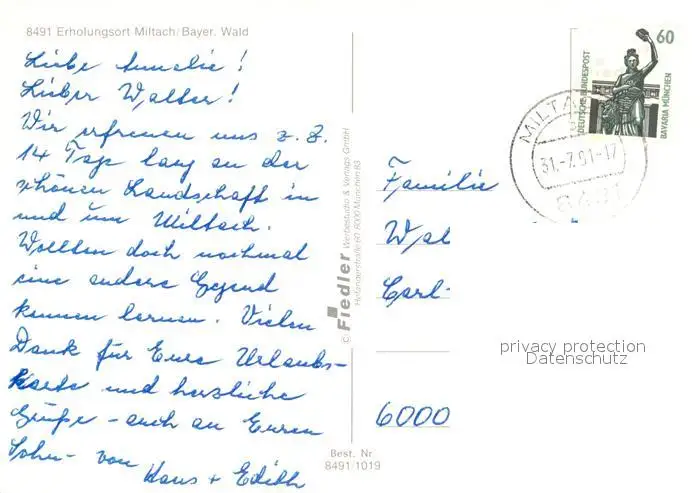 8491 Erholungsort Miltach/Bayer. Wald
Liebe Amelie!
Lieber Walter!
Wir erfreuen uns z. Z.
14 Tage lang an der
schönen Landschaft in
und um Miltach.
Wollten doch nochmal
eine andere Gegend
kennen lernen. Vielen
Dank für Eure Urlaubs-
karte und herzliche
Grüße - auch an Euren
Sohn - von
Hans + Edith
© Fiedler Werbestudio & Verlags GmbH
8000 München 83
Best. Nr
8491/1019
60
DEUTSCHE BUNDESPOST
BAVARIA MÜNCHEN
31.-7.91-17
Familie
Wal
Carl-
6000
privacy protection
Datenschutz